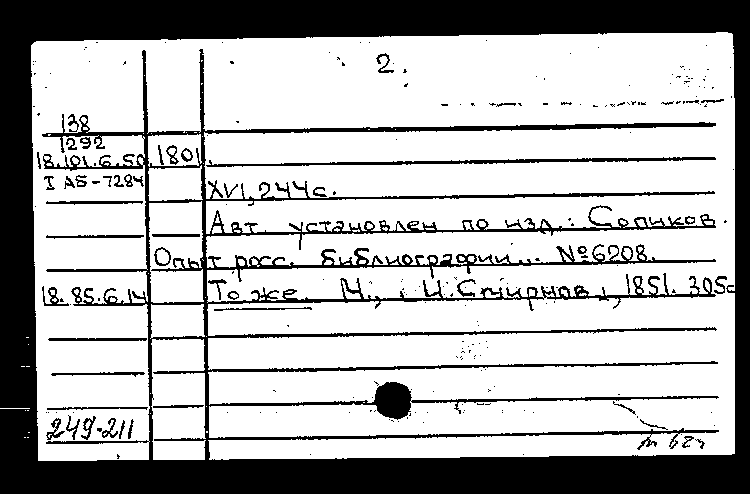 2.
138
1292
18.101.6.50 1801.
I АБ-7284
XVI, 244с.
Авт. установлен по изд.: Сопиков.
Опыт росс. библиографии... №6208.
18.85.6.14 То же. М., И.Смирнов, 1851. 305с
249-211